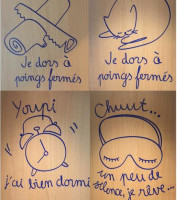 Je dors à
poings fermés
Je dors à
poings fermés
Youpi
j'ai bien dormi
Chuut...
un peu de
silence, je rêve...